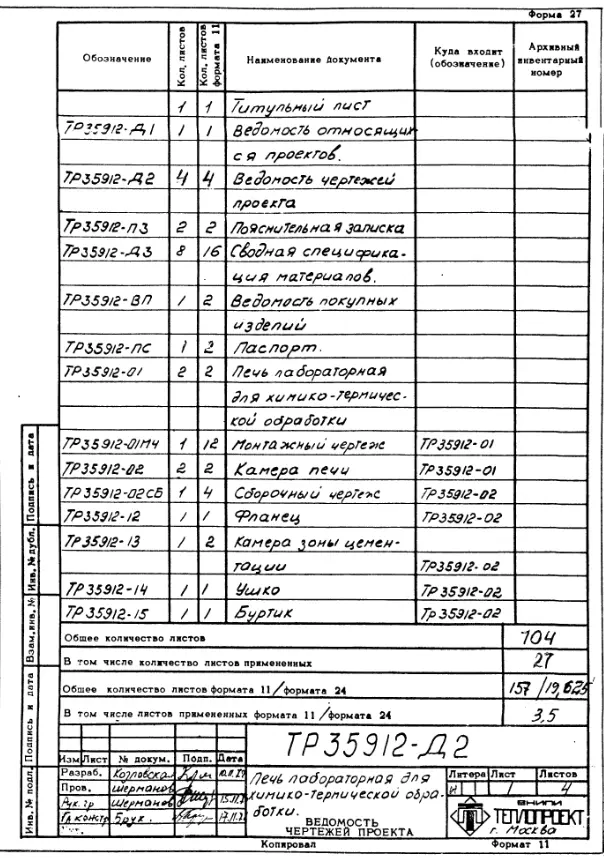 Форма 27
Обозначение Кол. листов Кол. листов формата 11 Наименование Документа Куда входит (обозначение) Архивный инвентарный номер
1 1 Титульный лист
ТР35912-Д1 1 1 Ведомость относящих-
ся проектов.
ТР35912-Д2 4 4 Ведомость чертежей
проекта
ТР35912-ПЗ 2 2 Пояснительная записка
ТР35912-Д3 8 16 Сводная специфика-
ция материалов.
ТР35912-ВП 1 2 Ведомость покупных
изделий
ТР35912-ПС 1 2 Паспорт.
ТР35912-01 2 2 Печь лабораторная
для химико-термичес-
кой обработки
ТР35912-01МЧ 1 12 Монтажный чертеж ТР35912-01
ТР35912-02 2 2 Камера печи ТР35912-01
ТР35912-02СБ 1 4 Сборочный чертеж ТР35912-02
ТР35912-12 1 1 Фланец ТР35912-02
ТР35912-13 1 2 Камера зоны цемен-
тации ТР35912-02
ТР35912-14 1 1 Ушко ТР35912-02
ТР35912-15 1 1 Буртик ТР35912-02
Общее количество листов 104
В том числе количество листов примененных 27
Общее количество листов формата 11/формата 24 157/19,625
В том числе листов примененных формата 11/формата 24 3,5
Инв.№ подл. Подпись и дата Взам.инв.№ Инв.№дубл. Подпись и дата
ТР35912-Д2
Изм Лист № докум. Подп. Дата
Разраб. Козловская
Пров. Шерманов
Рук. гр Шерманов
Гл констр Брук.
Печь лабораторная для
химико-термической обра-
ботки.
ВЕДОМОСТЬ
ЧЕРТЕЖЕЙ ПРОЕКТА
Литера Лист Листов
И 1 4
ВНИПИ
ТЕПЛОПРОЕКТ
г. Москва
Копировал Формат 11